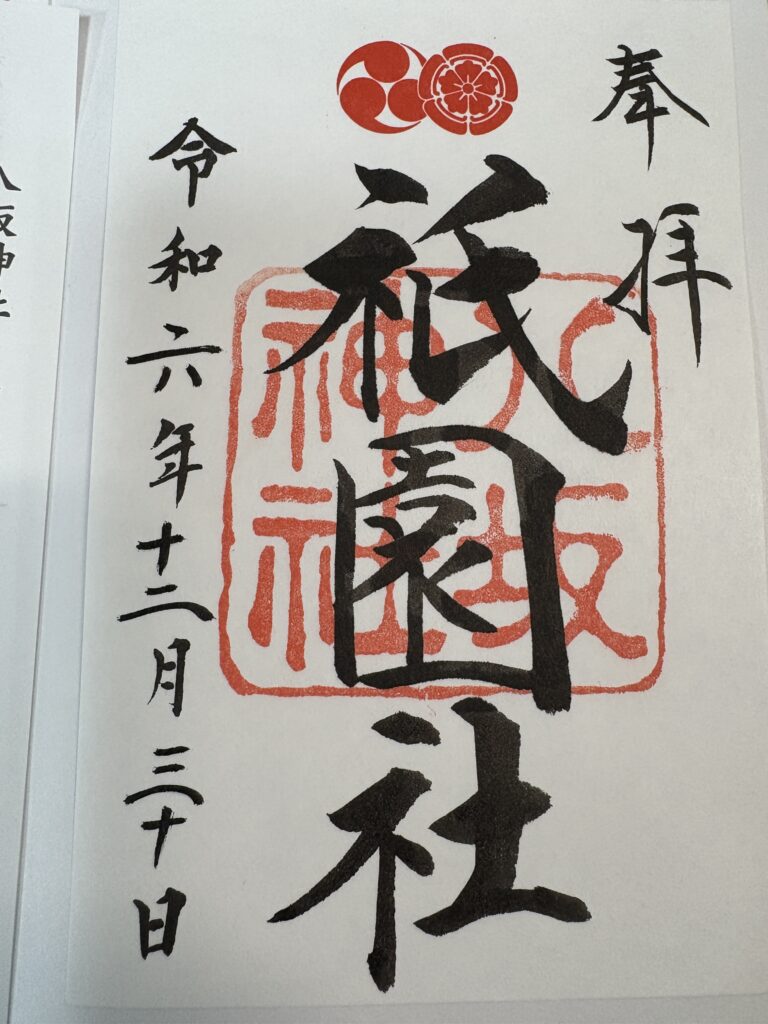 奉拝
祇園社
八坂神社
令和六年十二月三十日
八坂神社